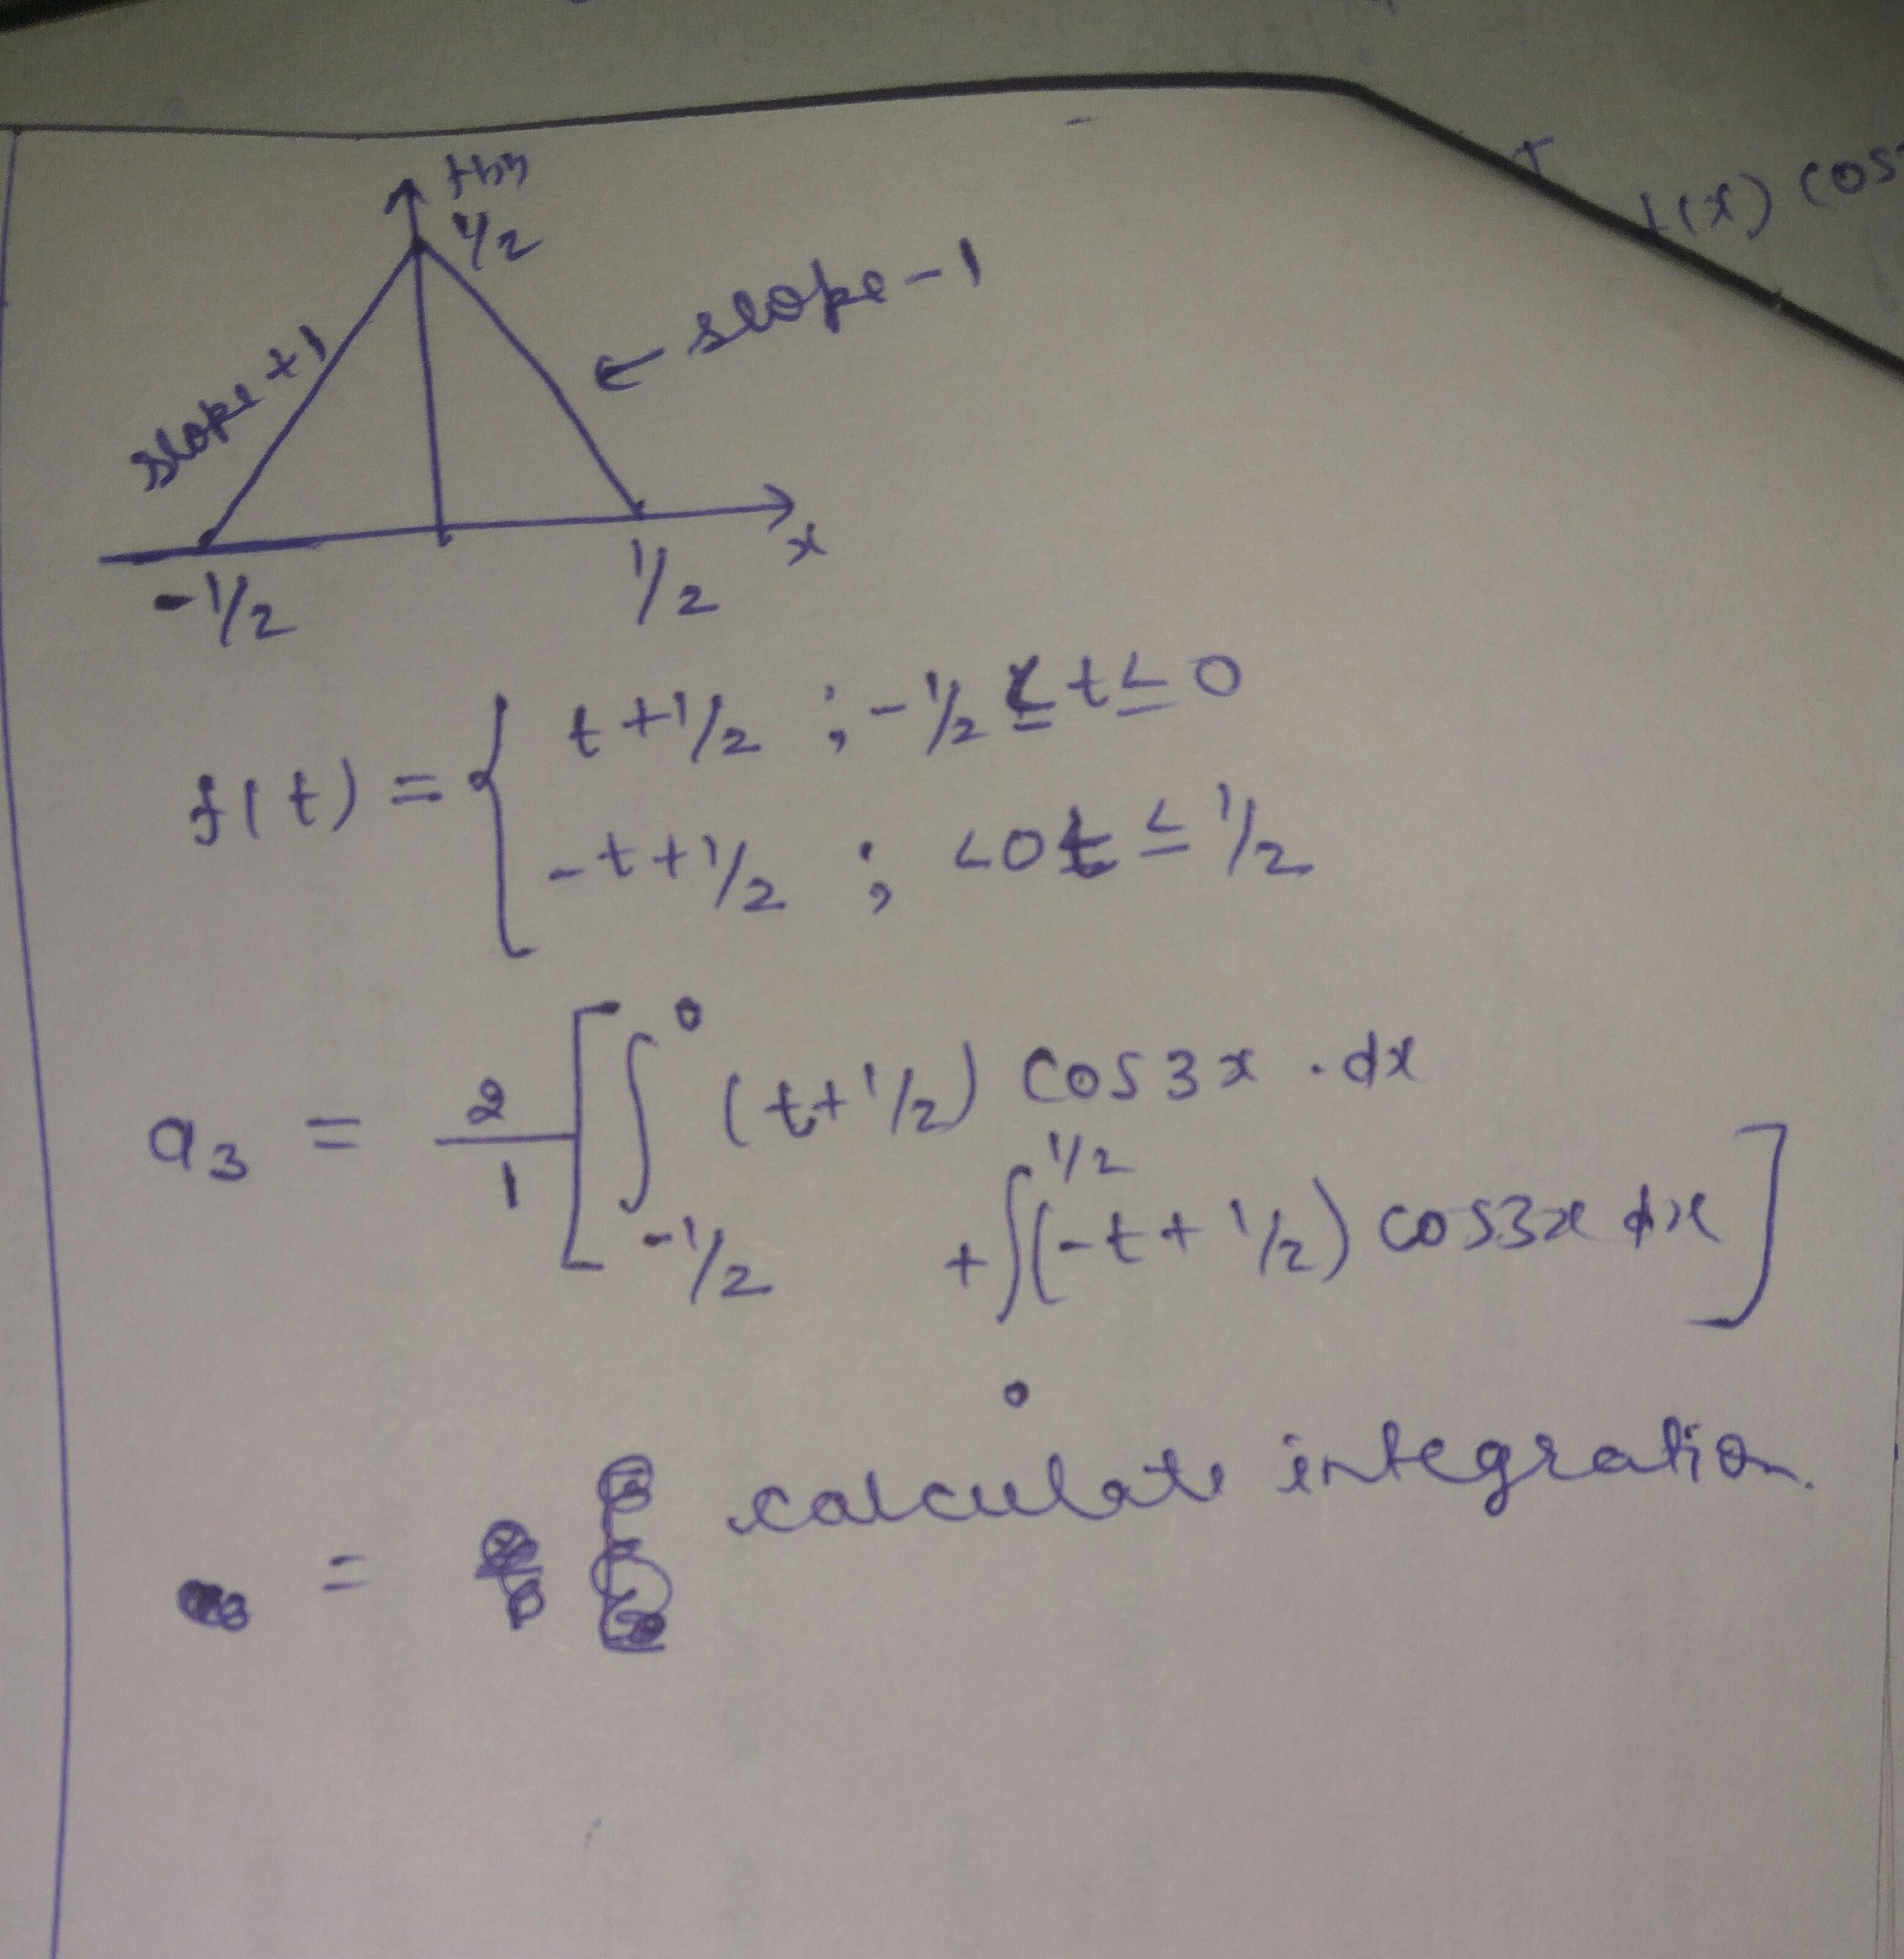 f(x) cos
1/2
slope +1
← slope -1
x
-1/2
1/2
f(t) = { t + 1/2 ; -1/2 ≤ t ≤ 0
-t + 1/2 ; <0t ≤ 1/2
a3 = 2/1 [ ∫ -1/2 0 (t + 1/2) cos3x . dx
+ ∫ 0 1/2 (-t + 1/2) cos3x dx ]
= calculate integration.